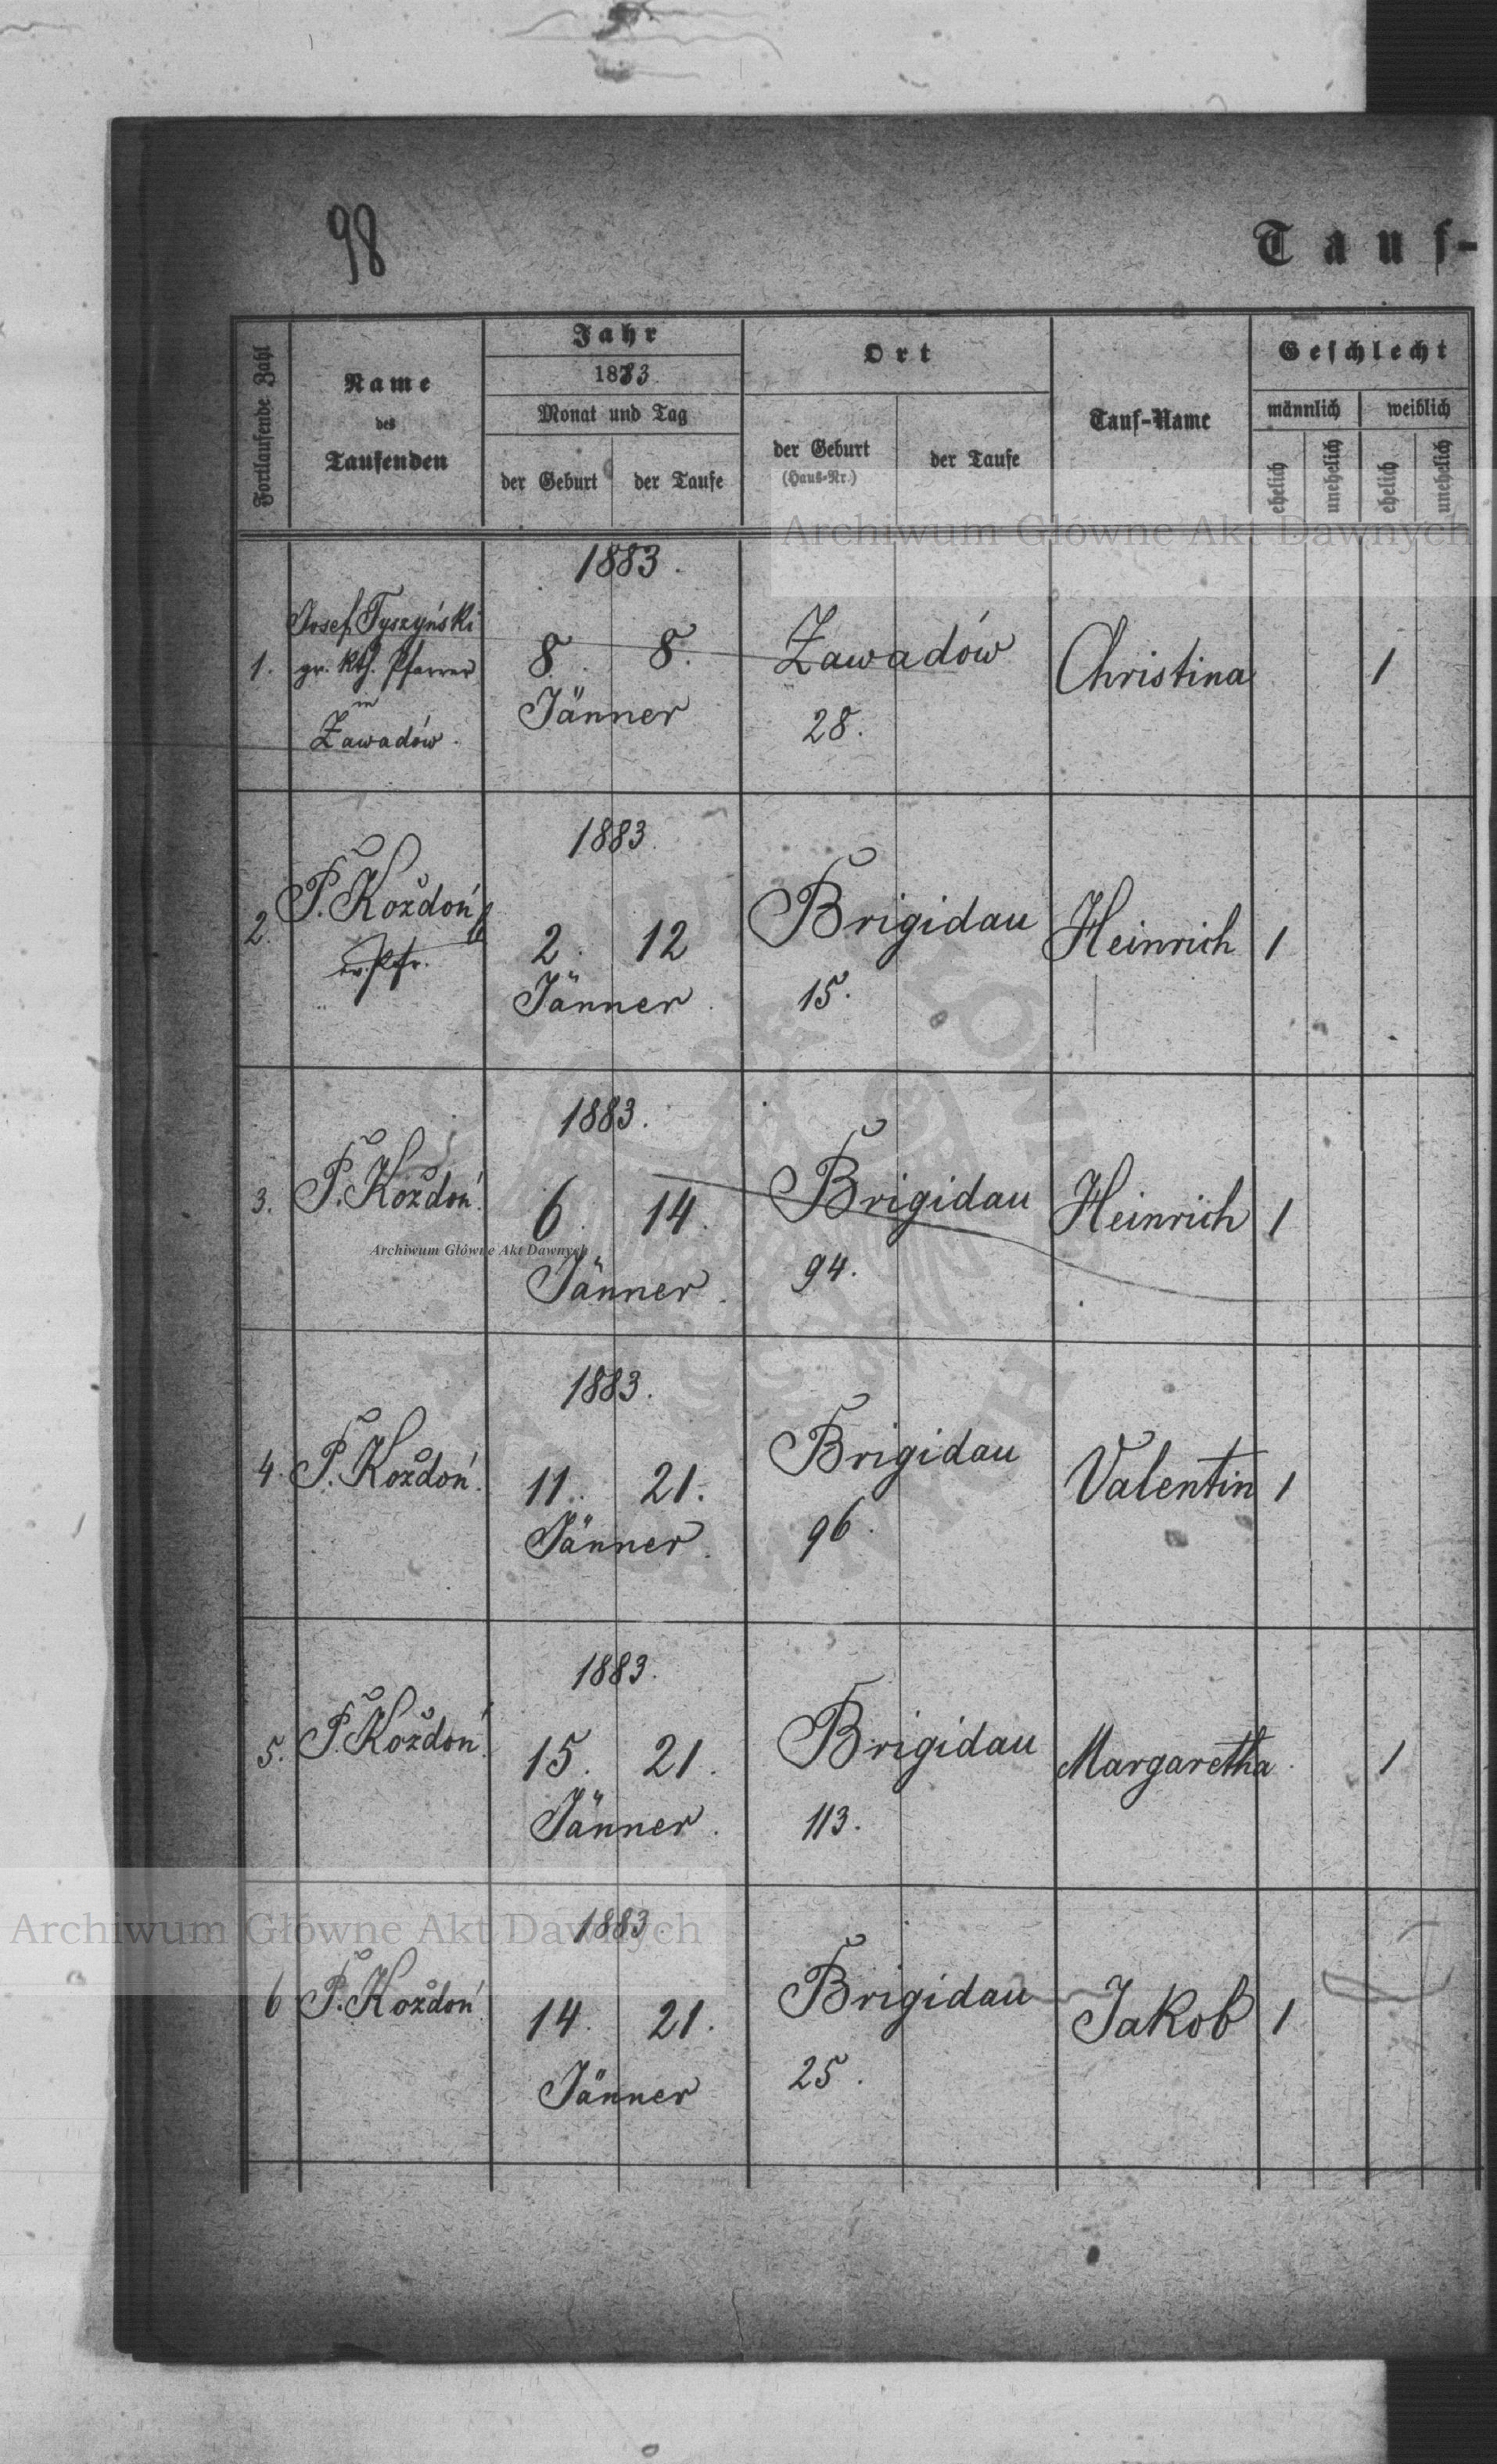 98
Tauf-
Fortlaufende Zahl
Name
des
Taufenden
Jahr
1883.
Monat und Tag
der Geburt
der Taufe
Ort
der Geburt
(Haus-Nr.)
der Taufe
Tauf-Name
Geschlecht
männlich
weiblich
ehelich
unehelich
ehelich
unehelich
Archiwum Główne Akt Dawnych
1883.
1.
Josef Tyszyński
gr. kth. Pfarrer
in
Zawadów.
8. 8.
Jänner
Zawadów
28.
Christina
1
1883.
2.
P. Koždoń
ev. Pfr.
2. 12
Jänner.
Brigidau
15.
Heinrich
1
1883.
3.
P. Koždoń.
6. 14.
Jänner.
Brigidau
94.
Heinrich
1
Archiwum Główne Akt Dawnych
1883.
4.
P. Koždoń.
11. 21.
Jänner.
Brigidau
96.
Valentin
1
1883.
5.
P. Koždoń.
15. 21.
Jänner.
Brigidau
113.
Margaretha
1
Archiwum Główne Akt Dawnych
1883.
6
P. Koždoń.
14. 21.
Jänner
Brigidau
25.
Jakob
1